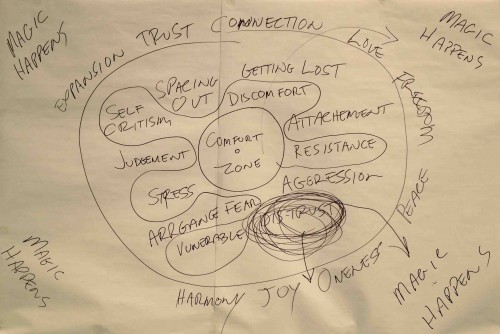 MAGIC
HAPPENS
EXPANSION TRUST CONNECTION
LOVE
MAGIC
HAPPENS
FREEDOM
SPACING
OUT
GETTING LOST
DISCOMFORT
SELF
CRITISIM
ATTACHEMENT
COMFORT
ZONE
JUDGEMENT
RESISTANCE
STRESS
AGGRESSION
PEACE
ARRGANCE FEAR
VUNERABLE
DISTRUST
MAGIC
HAPPENS
HARMONY JOY ONENESS
MAGIC
HAPPENS